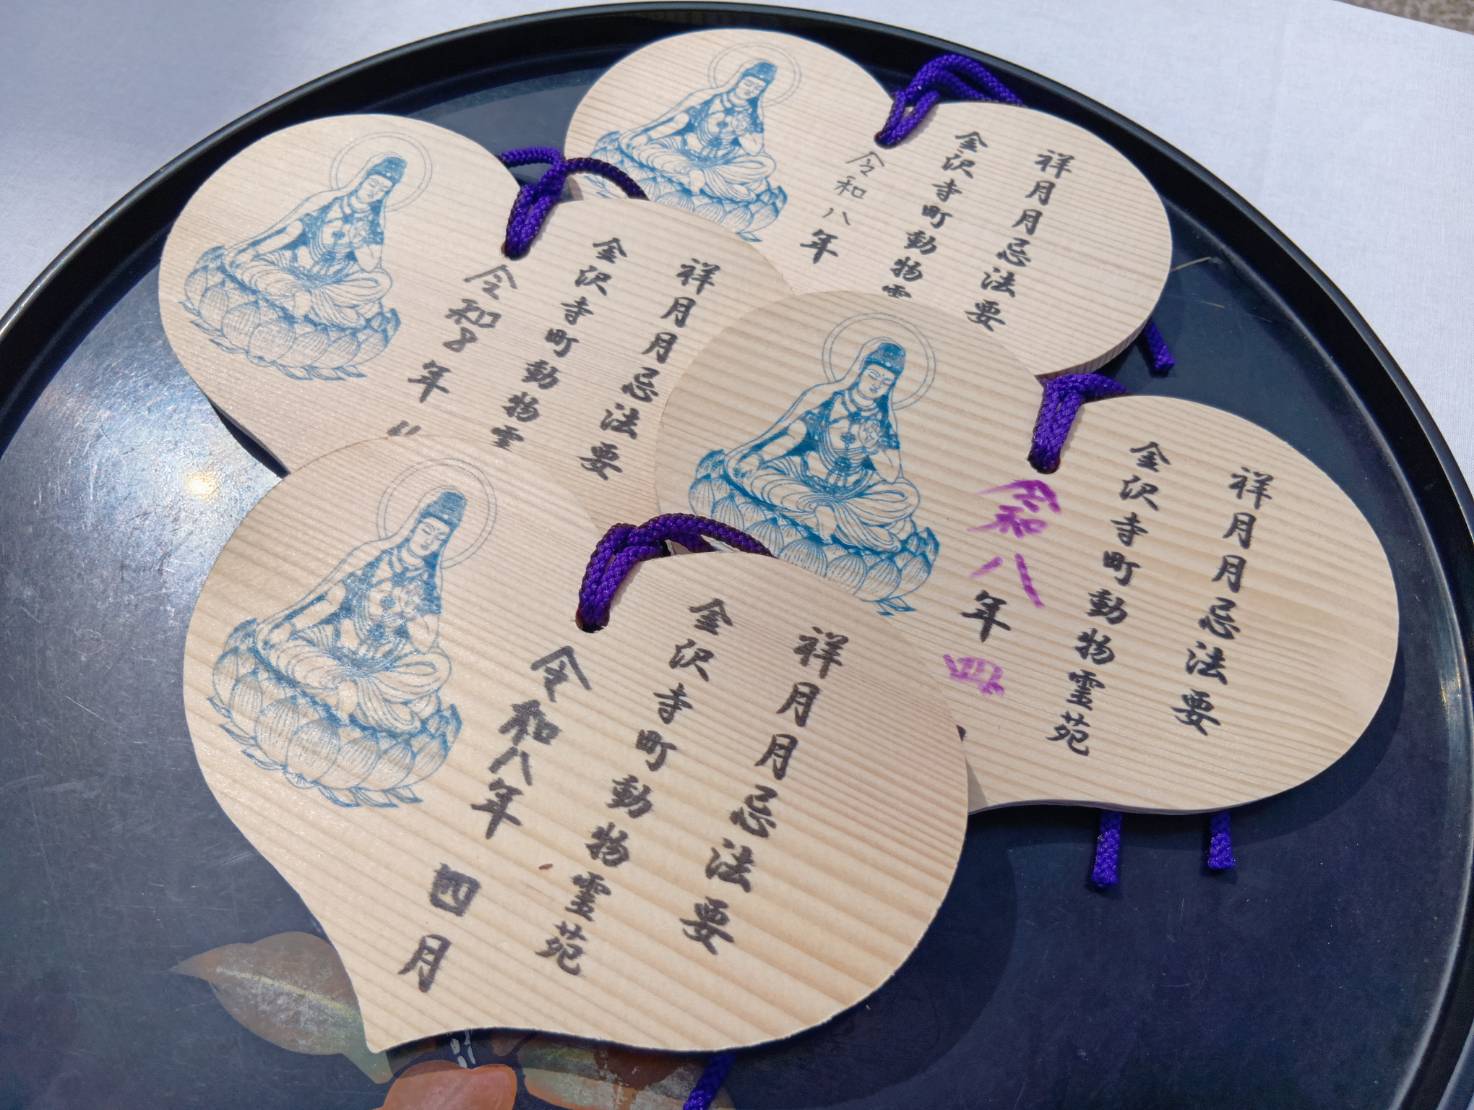 祥月月忌法要
金沢寺町動物霊
令和八年
祥月月忌法要
金沢寺町動物霊
令和8年
祥月月忌法要
金沢寺町動物霊苑
令和八年四
祥月月忌法要
金沢寺町動物霊苑
令和八年四月